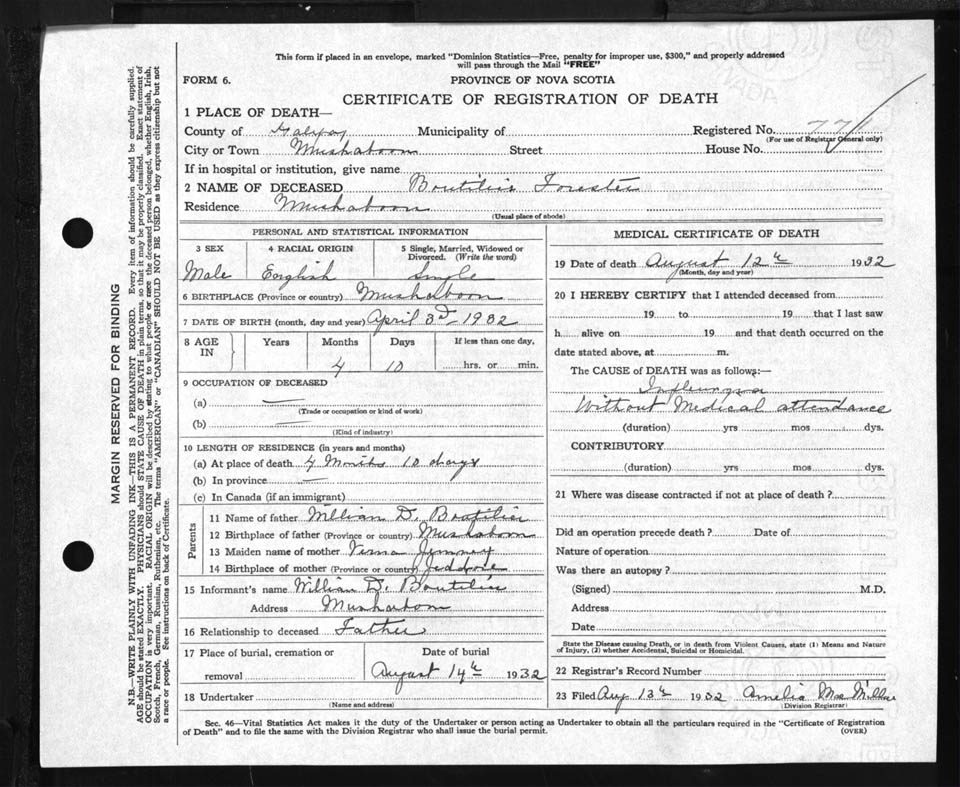 This form if placed in an envelope, marked "Dominion Statistics—Free, penalty for improper use, $300," and properly addressed
will pass through the Mail "FREE"
FORM 6. PROVINCE OF NOVA SCOTIA
CERTIFICATE OF REGISTRATION OF DEATH
1 PLACE OF DEATH—
County of Halifax Municipality of Registered No.
(For use of Registrar General only)
City or Town Mushaboom Street House No.
If in hospital or institution, give name
2 NAME OF DECEASED Boutilier Forester
Residence Mushaboom
(Usual place of abode)
PERSONAL AND STATISTICAL INFORMATION
3 SEX 4 RACIAL ORIGIN 5 Single, Married, Widowed or
Divorced. (Write the word)
Male English Single
6 BIRTHPLACE (Province or country) Mushaboom
7 DATE OF BIRTH (month, day and year) April 3d 1932
8 AGE Years Months Days If less than one day,
IN 4 10 hrs. or min.
9 OCCUPATION OF DECEASED
(a) —
(Trade or occupation or kind of work)
(b) —
(Kind of industry)
10 LENGTH OF RESIDENCE (in years and months)
(a) At place of death 4 Months 10 days
(b) In province —
(c) In Canada (if an immigrant)
Parents
11 Name of father William D. Boutilier
12 Birthplace of father (Province or country) Mushaboom
13 Maiden name of mother Verna
14 Birthplace of mother (Province or country) Jeddore
15 Informant's name William D. Boutilier
Address Mushaboom
16 Relationship to deceased Father
17 Place of burial, cremation or Date of burial
removal August 14th 1932
18 Undertaker
(Name and address)
MEDICAL CERTIFICATE OF DEATH
19 Date of death August 12th 1932
(Month, day and year)
20 I HEREBY CERTIFY that I attended deceased from
19 to 19 that I last saw
h alive on 19 and that death occurred on the
date stated above, at m.
The CAUSE of DEATH was as follows:
Influenza
Without Medical attendance
(duration) yrs mos dys.
CONTRIBUTORY
(duration) yrs mos dys.
21 Where was disease contracted if not at place of death?
Did an operation precede death? Date of
Nature of operation
Was there an autopsy?
(Signed) M.D.
Address
Date
State the Disease causing Death, or in death from Violent Causes, state (1) Means and Nature
of Injury, (2) whether Accidental, Suicidal or Homicidal.
22 Registrar's Record Number
23 Filed Aug 13th 1932 Amelia
(Division Registrar)
Sec. 46—Vital Statistics Act makes it the duty of the Undertaker or person acting as Undertaker to obtain all the particulars required in the "Certificate of Registration
of Death" and to file the same with the Division Registrar who shall issue the burial permit. (OVER)
MARGIN RESERVED FOR BINDING
N.B.—WRITE PLAINLY WITH UNFADING INK—THIS IS A PERMANENT RECORD. Every item of information should be carefully supplied.
AGE should be stated EXACTLY. PHYSICIANS should STATE CAUSE OF DEATH in plain terms, so that it may be properly classified. Exact statement of
OCCUPATION is very important. RACIAL ORIGIN will be described by stating to what people or race the deceased person belonged, whether English, Irish,
Scotch, French, German, Russian, Ruthenian, etc. The terms "AMERICAN" or "CANADIAN" SHOULD NOT BE USED as they express citizenship but not
a race or people. See instructions on back of Certificate.